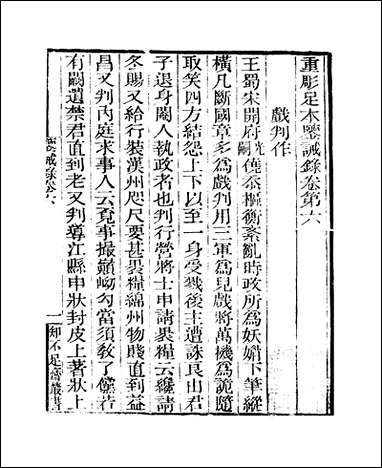 重彫足本鑒誡錄卷第六
戲判作
王蜀宋開府光嗣僥忝樞衡紊亂時政所爲妖媚下筆縱
橫凡斷國章多爲戲判用三軍爲兒戲將萬機爲詭隨
取笑四方結怨上下以至一身受戮後主遭誅良由君
子退身閹人執政者也判行營將士申請裹糧云纔請
冬賜又給行裝漢州咫尺要甚裹糧綿州物賤直到益
昌又判內庭求事人云覓事撮巔㘭勾當須敎了儻若
有闕遺禁君直到老又判導江縣申狀封皮上著狀上
鑒戒錄卷六
一 知不足齋叢書